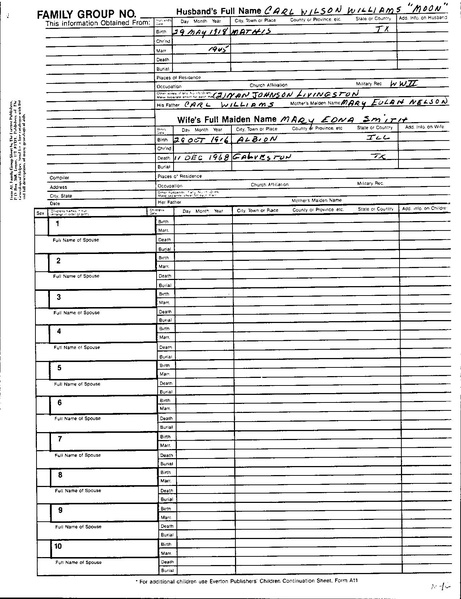 FAMILY GROUP NO.
This Information Obtained From:
Husband's Full Name CARL WILSON WILLIAMS "MOON"
Day Month Year City, Town or Place County or Province, etc. State or Country Add. Info. on Husband
Birth 29 MAY 1918 MATHIS TX
Chr'nd
Marr. 1945
Death
Burial
Places of Residence
Occupation Church Affiliation Military Rec. WWII
(2) NAN JOHNSON LIVINGSTON
His Father CARL WILLIAMS Mother's Maiden Name MARY EULAN NELSON
Wife's Full Maiden Name MARY EDNA SMITH
Day Month Year City, Town or Place County or Province, etc. State or Country Add. Info. on Wife
Birth 28 OCT 1916 ALBION ILL
Chr'nd
Death 11 DEC 1968 GALVESTON TX
Burial
Compiler
Address
City, State
Date
Places of Residence
Occupation Church Affiliation Military Rec.
Her Father Mother's Maiden Name
Sex
Day Month Year City, Town or Place County or Province, etc. State or Country Add. Info. on Children
1
Full Name of Spouse
Birth
Marr.
Death
Burial
2
Full Name of Spouse
Birth
Marr.
Death
Burial
3
Full Name of Spouse
Birth
Marr.
Death
Burial
4
Full Name of Spouse
Birth
Marr.
Death
Burial
5
Full Name of Spouse
Birth
Marr.
Death
Burial
6
Full Name of Spouse
Birth
Marr.
Death
Burial
7
Full Name of Spouse
Birth
Marr.
Death
Burial
8
Full Name of Spouse
Birth
Marr.
Death
Burial
9
Full Name of Spouse
Birth
Marr.
Death
Burial
10
Full Name of Spouse
Birth
Marr.
Death
Burial
* For additional children use Everton Publishers' Children Continuation Sheet, Form A11